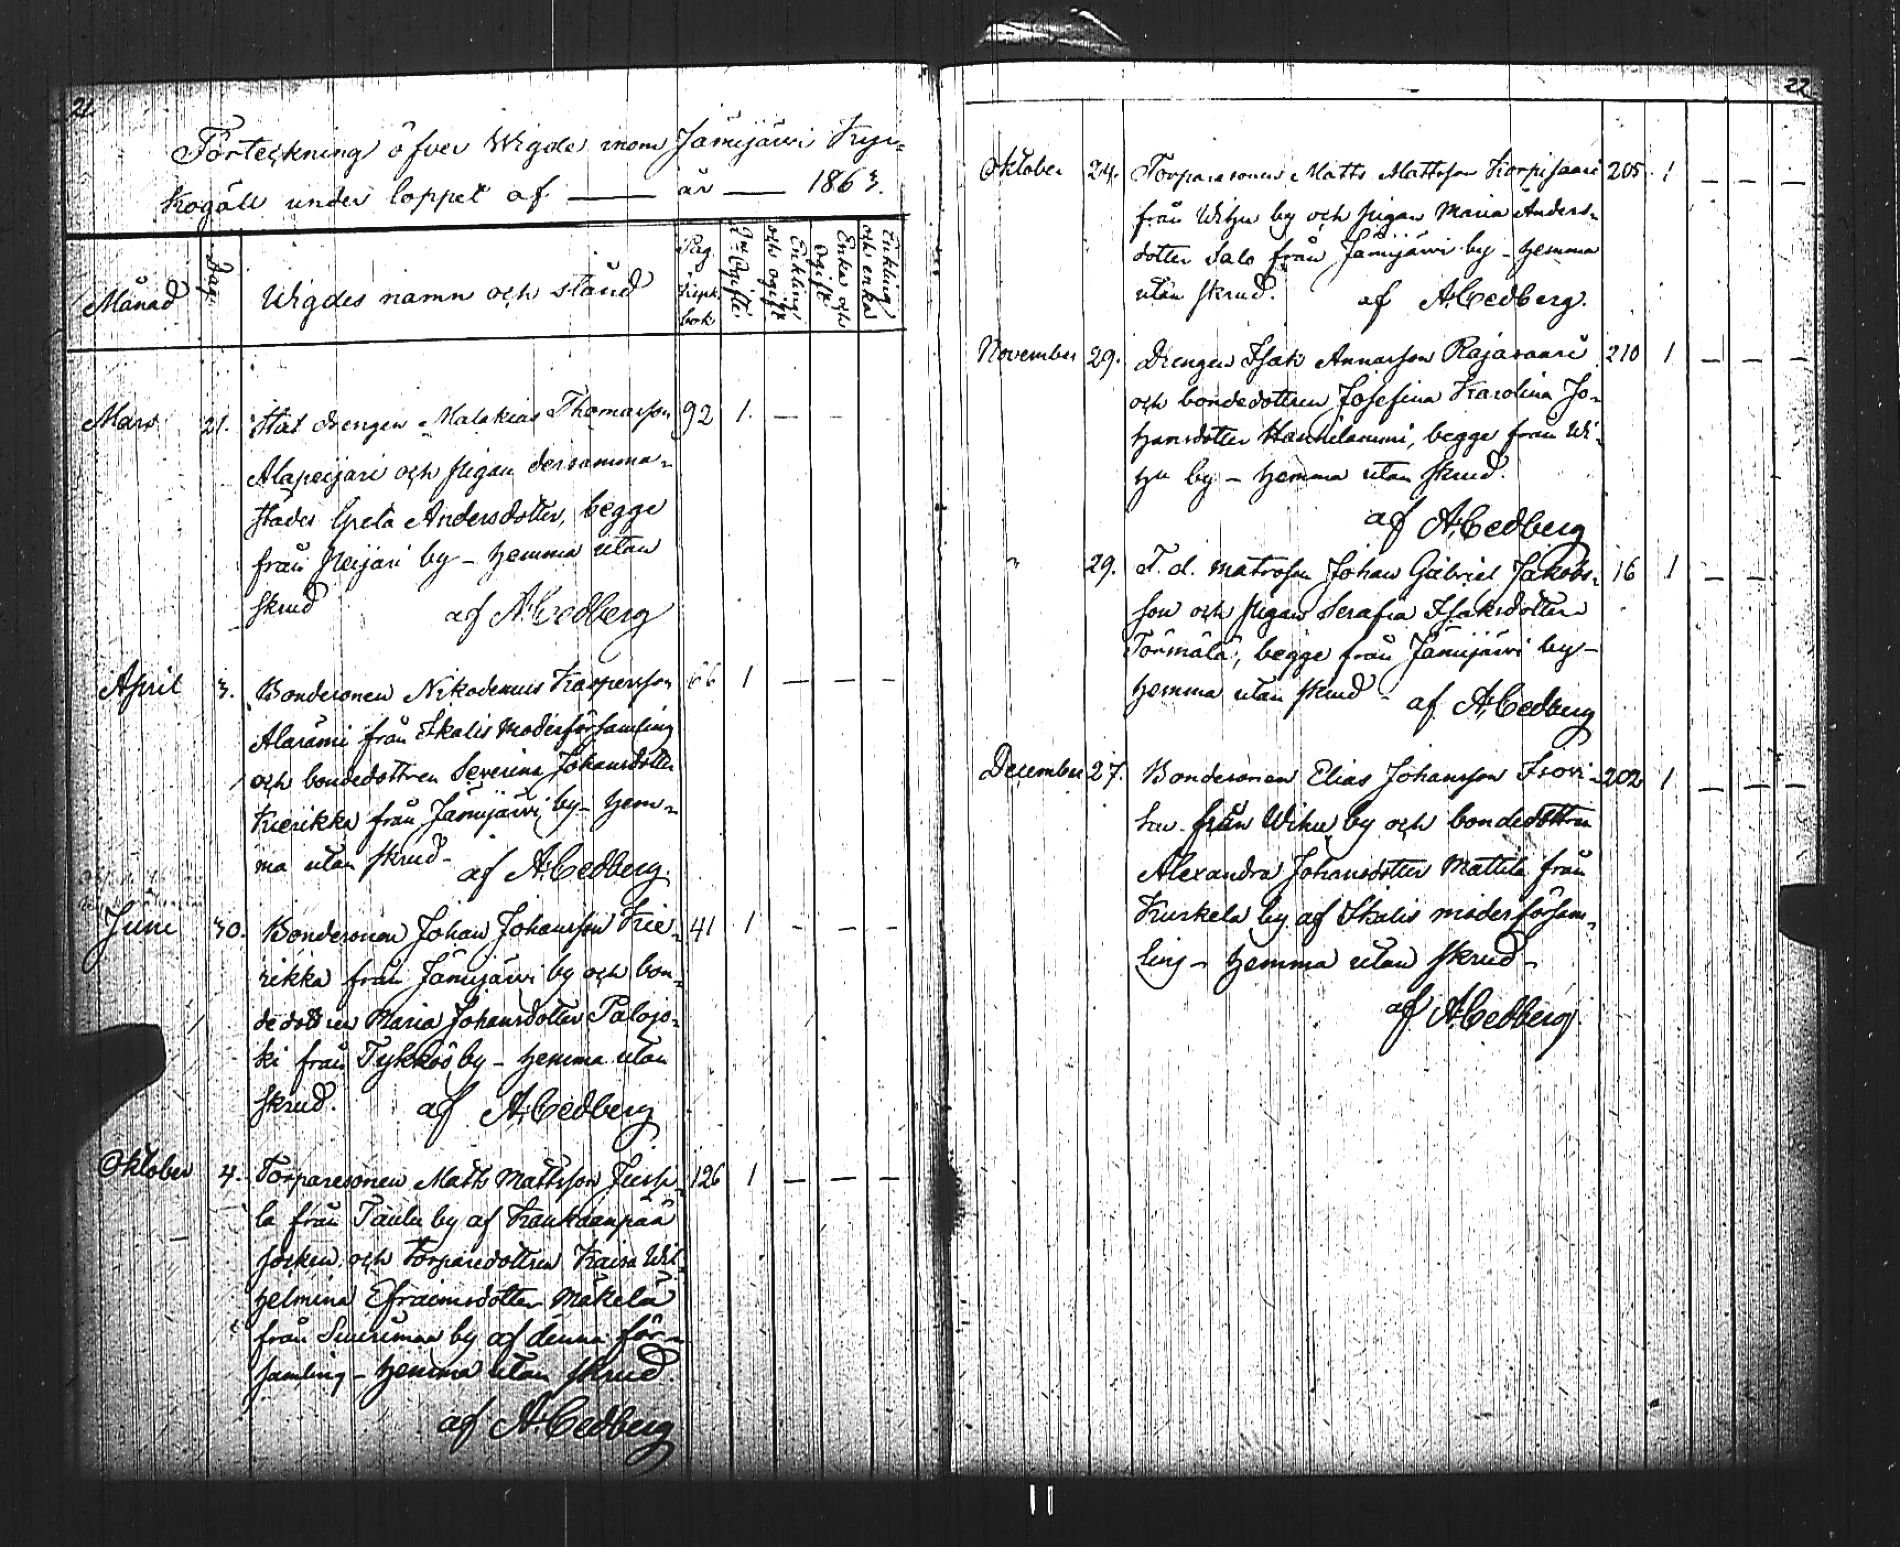 21.
Förteckning öfver Wigde inom Jämijärvi Kyr-
kogäll under loppet af — år — 1863.
Månad
Dag.
Wigdes namn och stånd
Pag. Kyrk. bok
2ne Ogifte
Enkling och ogift
Enka och Ogift
Enkling och enka
Mars 21. Stat drengen Malakias Thomasson 92 1. — –
Alapeijari och pigan dersamma-
städes Greta Andersdotter, begge
från Peijari by – hemma utan
skrud af A. Cedberg
April 3. Bondesonen Nikodemus Kaspersson 66 1 — — –
Alarämi från Ikalis Moderförsamling
och bondedottren Severina Johansdotter
Kierikka från Jämijärvi by – hem-
ma utan skrud – af A. Cedberg.
Juni 30. Bondesonen Johan Johansson Kie- 41 1 – – –
rikka från Jämijärvi by och bon-
dedottren Maria Johansdotter Palojo-
ki från Tykköö by – hemma utan
skrud. af A. Cedberg
Oktober 4. Torparesonen Matts Mattsson Jussi- 126 1 — — —
la från Taulu by af Kankaanpää
socken och Torparedottren Kaisa Wil-
helmina Efraimsdotter Mäkelä
från Suurimaa by af denna för-
samling – hemma utan skrud.
af A. Cedberg
22
Oktober 24. Torparesonen Matts Mattsson Korpisaari 205. 1 — — —
från Wihu by och pigan Maria Anders-
dotter Salo från Jämijärvi by – hemma
utan skrud. af A. Cedberg.
November 29. Drengen Isak Annasson Rajavaari 210 1 — — —
och bondedottren Josefina Karolina Jo-
hansdotter Hannilammi, begge från Wi-
hu by – hemma utan skrud.
af A. Cedberg
" 29. F. d. matrosen Johan Gabriel Jakobs- 16 1 — —
son och pigan Serafia Isaksdotter
Törmälä, begge från Jämijärvi by –
hemma utan skrud – af A. Cedberg
December 27. Bondesonen Elias Johansson Isovi- 202 1 — — —
hu från Wihu by och bondedottren
Alexandra Johansdotter Mattila från
Kurkela by af Ikalis moderförsam-
ling – hemma utan skrud –
af A. Cedberg.